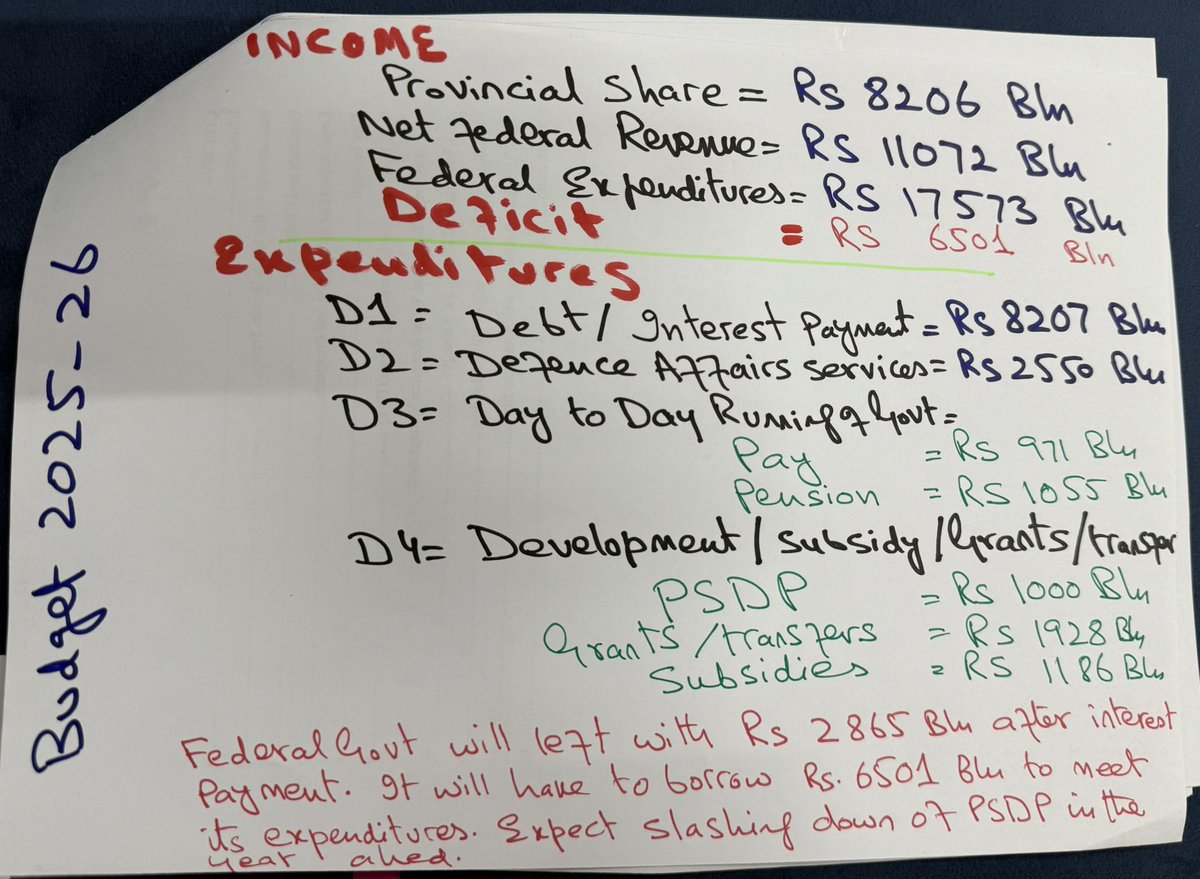 INCOME
Provincial Share = Rs 8206 Bln
Net Federal Revenue = RS 11072 Bln
Federal Expenditures = RS 17573 Bln
Deficit = RS 6501 Bln
Expenditures
D1 = Debt / Interest Payment = Rs 8207 Bln
D2 = Defence Affairs services = Rs 2550 Bln
D3 = Day to Day Runing of Govt =
Pay = Rs 971 Bln
Pension = RS 1055 Bln
D4 = Development / Subsidy / Grants /
PSDP = Rs 1000 Bln
Grants / transfers = Rs 1928 Bln
Subsidies = RS 1186 Bln
Federal Govt will left with Rs 2865 Bln after interest
Payment. It will have to borrow Rs. 6501 Bln to meet
its expenditures. Expect slashing down of PSDP in the
year ahed.
Budget 2025-26